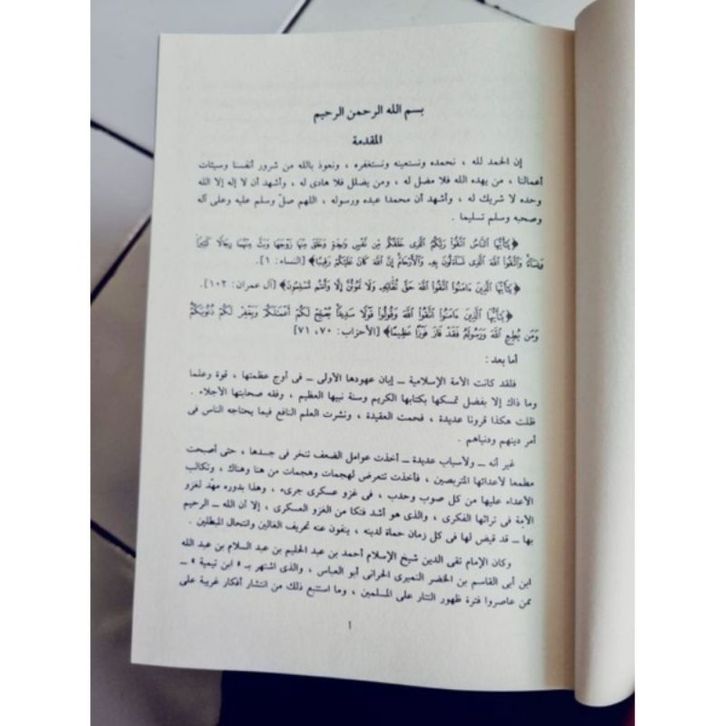 بسم الله الرحمن الرحيم
المقدمة
إن الحمد لله ، نحمده ونستعينه ونستغفره ، ونعوذ بالله من شرور أنفسنا وسيئات
أعمالنا ، من يهده الله فلا مضل له ، ومن يضلل فلا هادى له ، وأشهد أن لا إله إلا الله
وحده لا شريك له ، وأشهد أن محمدا عبده ورسوله ، اللهم صلّ وسلم عليه وعلى آله
وصحبه وسلم تسليما .
﴿يَا أَيُّهَا النَّاسُ اتَّقُوا رَبَّكُمُ الَّذِي خَلَقَكُم مِّن نَّفْسٍ وَاحِدَةٍ وَخَلَقَ مِنْهَا زَوْجَهَا وَبَثَّ مِنْهُمَا رِجَالًا كَثِيرًا
وَنِسَاءً وَاتَّقُوا اللَّهَ الَّذِي تَسَاءَلُونَ بِهِ وَالْأَرْحَامَ إِنَّ اللَّهَ كَانَ عَلَيْكُمْ رَقِيبًا﴾ [النساء : ١] .
﴿يَا أَيُّهَا الَّذِينَ آمَنُوا اتَّقُوا اللَّهَ حَقَّ تُقَاتِهِ وَلَا تَمُوتُنَّ إِلَّا وَأَنتُم مُّسْلِمُونَ﴾ [آل عمران : ١٠٢] .
﴿يَا أَيُّهَا الَّذِينَ آمَنُوا اتَّقُوا اللَّهَ وَقُولُوا قَوْلًا سَدِيدًا يُصْلِحْ لَكُمْ أَعْمَالَكُمْ وَيَغْفِرْ لَكُمْ ذُنُوبَكُمْ
وَمَن يُطِعِ اللَّهَ وَرَسُولَهُ فَقَدْ فَازَ فَوْزًا عَظِيمًا﴾ [الأحزاب : ٧٠، ٧١]
أما بعد :
فلقد كانت الأمة الإسلامية ــ إبان عهودها الأولى ــ فى أوج عظمتها ، قوة وعلما
وما ذاك إلا بفضل تمسكها بكتابها الكريم وسنة نبيها العظيم ، وفقه صحابتها الأجلاء .
ظلت هكذا قرونا عديدة ، فحمت العقيدة ، ونشرت العلم النافع فيما يحتاجه الناس فى
أمر دينهم ودنياهم .
غير أنه ــ ولأسباب عديدة ــ أخذت عوامل الضعف تنخر فى جسدها ، حتى أصبحت
مطمعا لأعدائها المتربصين ، فأخذت تتعرض لهجمات وهجمات من هنا وهناك ، وتكالب
الأعداء عليها من كل صوب وحدب ، فى غزو عسكرى جرىء ، وهذا بدوره مهّد لغزو
الأمة فى تراثها الفكرى ، والذى هو أشد فتكا من الغزو العسكرى ، إلا أن الله ــ الرحيم
بها ــ قد قيض لها فى كل زمان حماة لدينه ، ينفون عنه تحريف الغالين وانتحال المبطلين .
وكان الإمام تقى الدين شيخ الإسلام أحمد بن عبد الحليم بن عبد السلام بن عبد الله
ابن أبى القاسم بن الخضر النميرى الحرانى أبو العباس ، والذى اشتهر بـ « ابن تيمية » ــ
ممن عاصروا فترة ظهور التتار على المسلمين ، وما استتبع ذلك من انتشار أفكار غريبة على
١